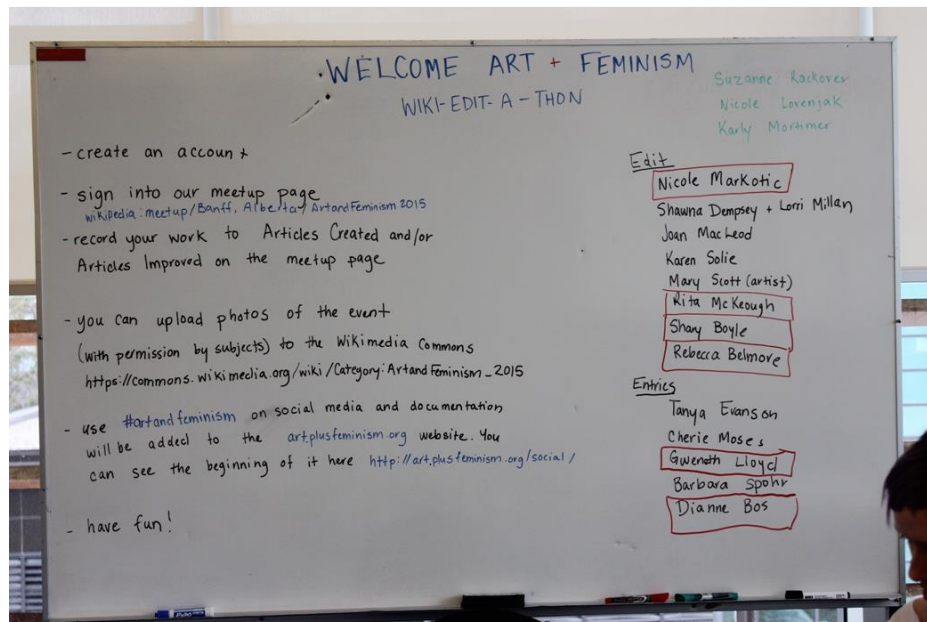 WELCOME ART + FEMINISM
WIKI-EDIT-A-THON
Suzanne Rackover
Nicole Lovenjak
Karly Mortimer
- create an account
- sign into our meetup page
wikipedia: meetup/Banff, Alberta/ArtandFeminism2015
- record your work to Articles Created and/or
Articles Improved on the meetup page
- you can upload photos of the event
(with permission by subjects) to the Wikimedia Commons
https://commons.wikimedia.org/wiki/Category:ArtandFeminism_2015
- use #artandfeminism on social media and documentation
will be added to the art.plusfeminism.org website. You
can see the beginning of it here http://art.plusfeminism.org/social/
- have fun!
Edit
Nicole Markotic
Shawna Dempsey + Lorri Millan
Joan MacLeod
Karen Solie
Mary Scott (artist)
Rita McKeough
Shary Boyle
Rebecca Belmore
Entries
Tanya Evanson
Cherie Moses
Gweneth Lloyd
Barbara Spohr
Dianne Bos